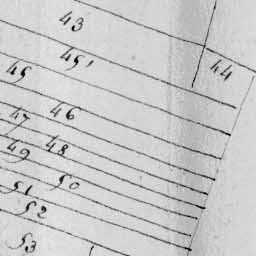 43
44
451
45
46
47
48
49
50
51
52
53